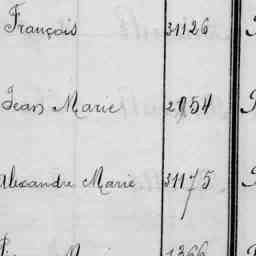 François 31126
Jean Marie 2954
Alexandre Marie 31175
Marie 1366